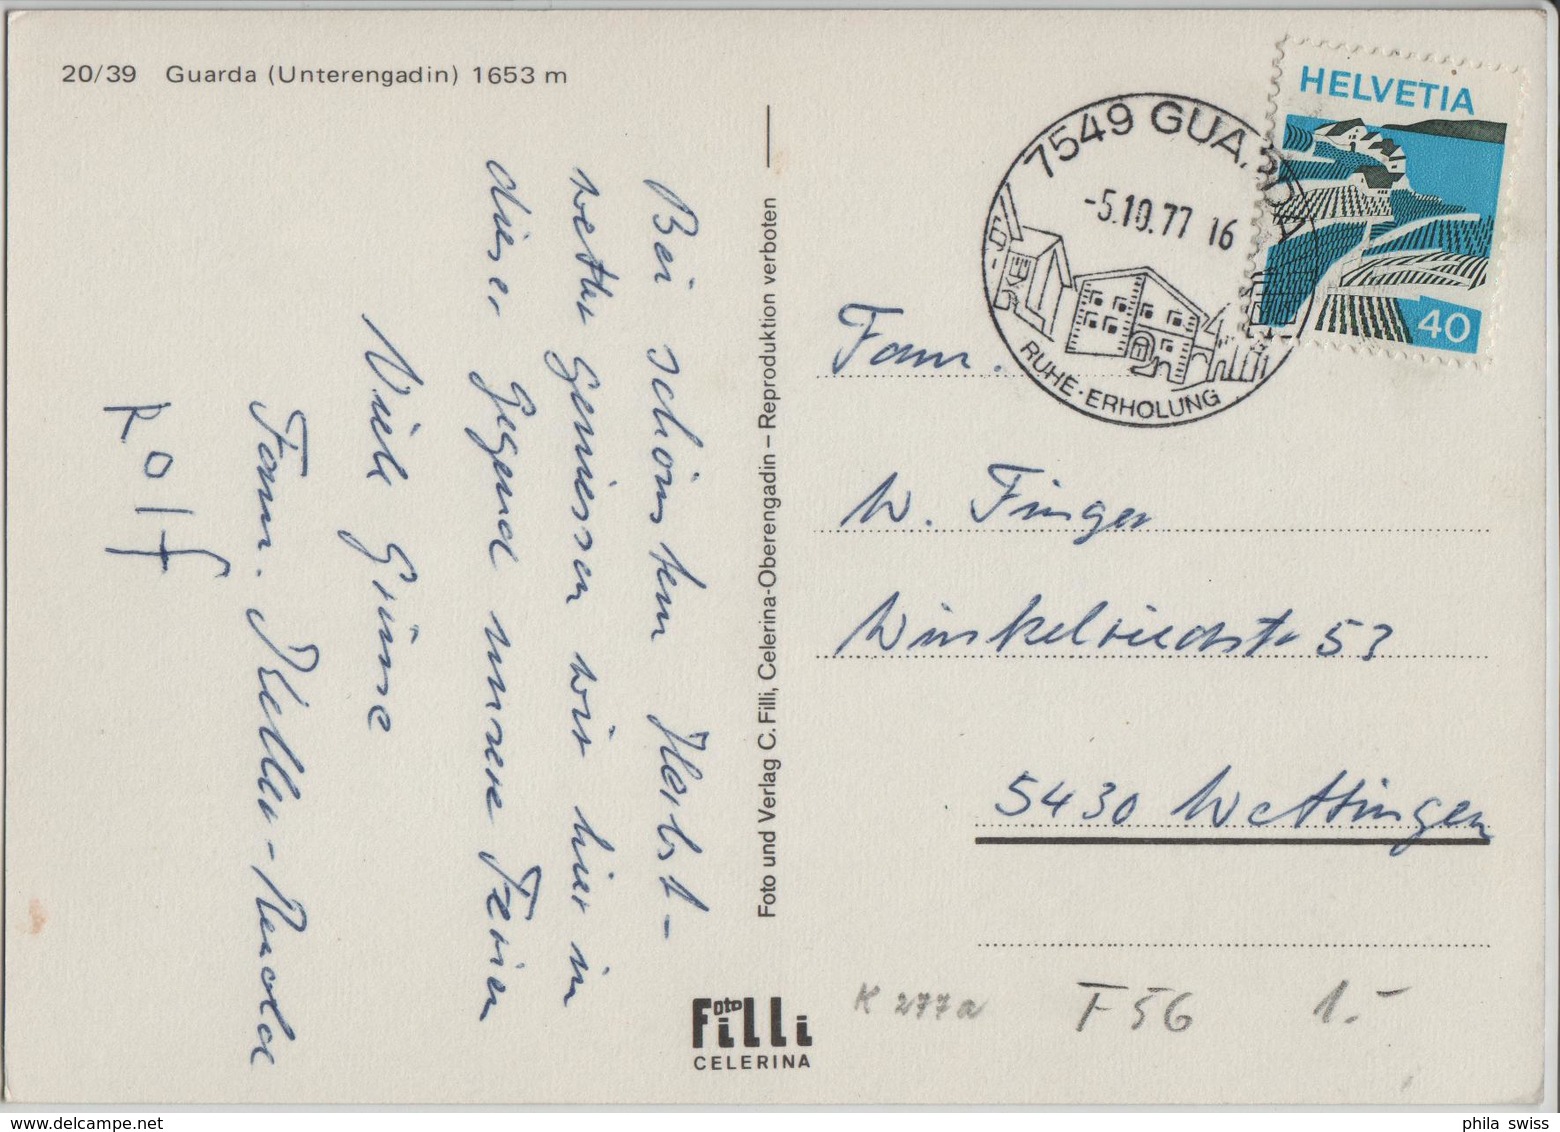 20/39 Guarda (Unterengadin) 1653 m
Bei schönstem Herbst-
wetter geniessen wir hier in
dieser Gegend unsere Ferien
Viele Grüsse
Fam. Keller-
Rolf
Foto und Verlag C. Filli, Celerina-Oberengadin – Reproduktion verboten
Foto
Filli
CELERINA
7549 GUARDA
-5.10.77 16
RUHE·ERHOLUNG
HELVETIA
40
Fam.
W. Finger
Winkelriedstr 53
5430 Wettingen
K 277a F 56 1.-
phila swiss